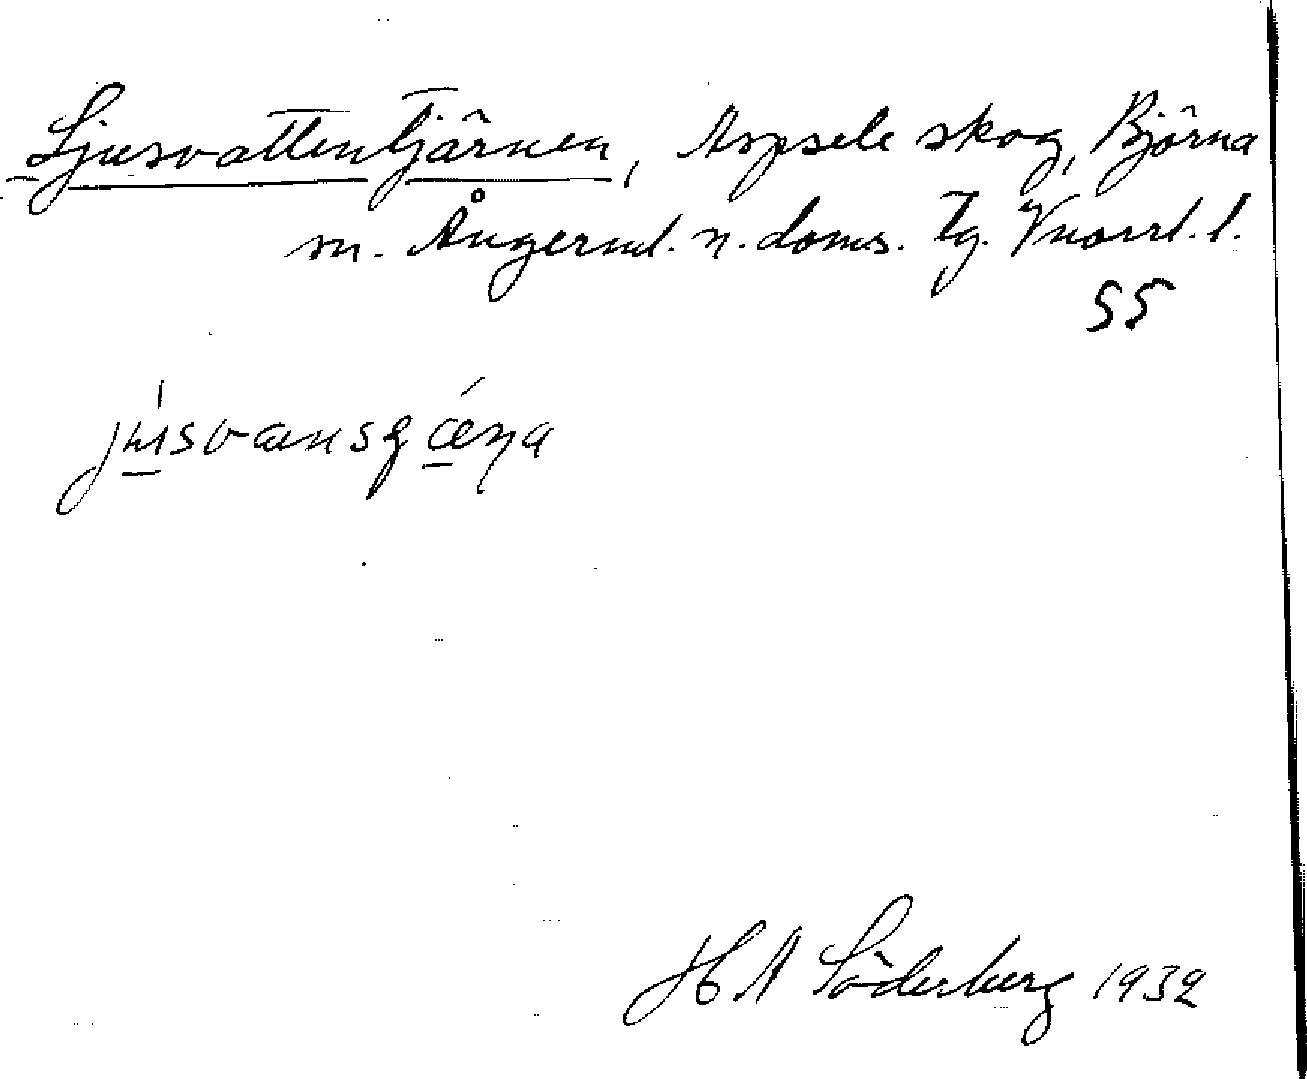 Ljusvattentjärnen, Aspsele skog, Björna
m. Ångerml. n. doms. tg. Vnorrl. l.
55
H A Söderberg 1932